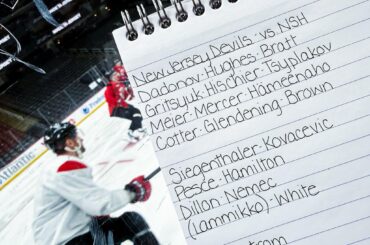 New Jersey Devils · vs NSH
Dadonov · Hughes · Bratt
Gritsyuk · Hischier · Tsyplakov
Meier · Mercer · Hämeenaho
Cotter · Glendening · Brown
Siegenthaler · Kovacevic
Pesce · Hamilton
Dillon · Nemec
(Lammikko) · White
Atlantic